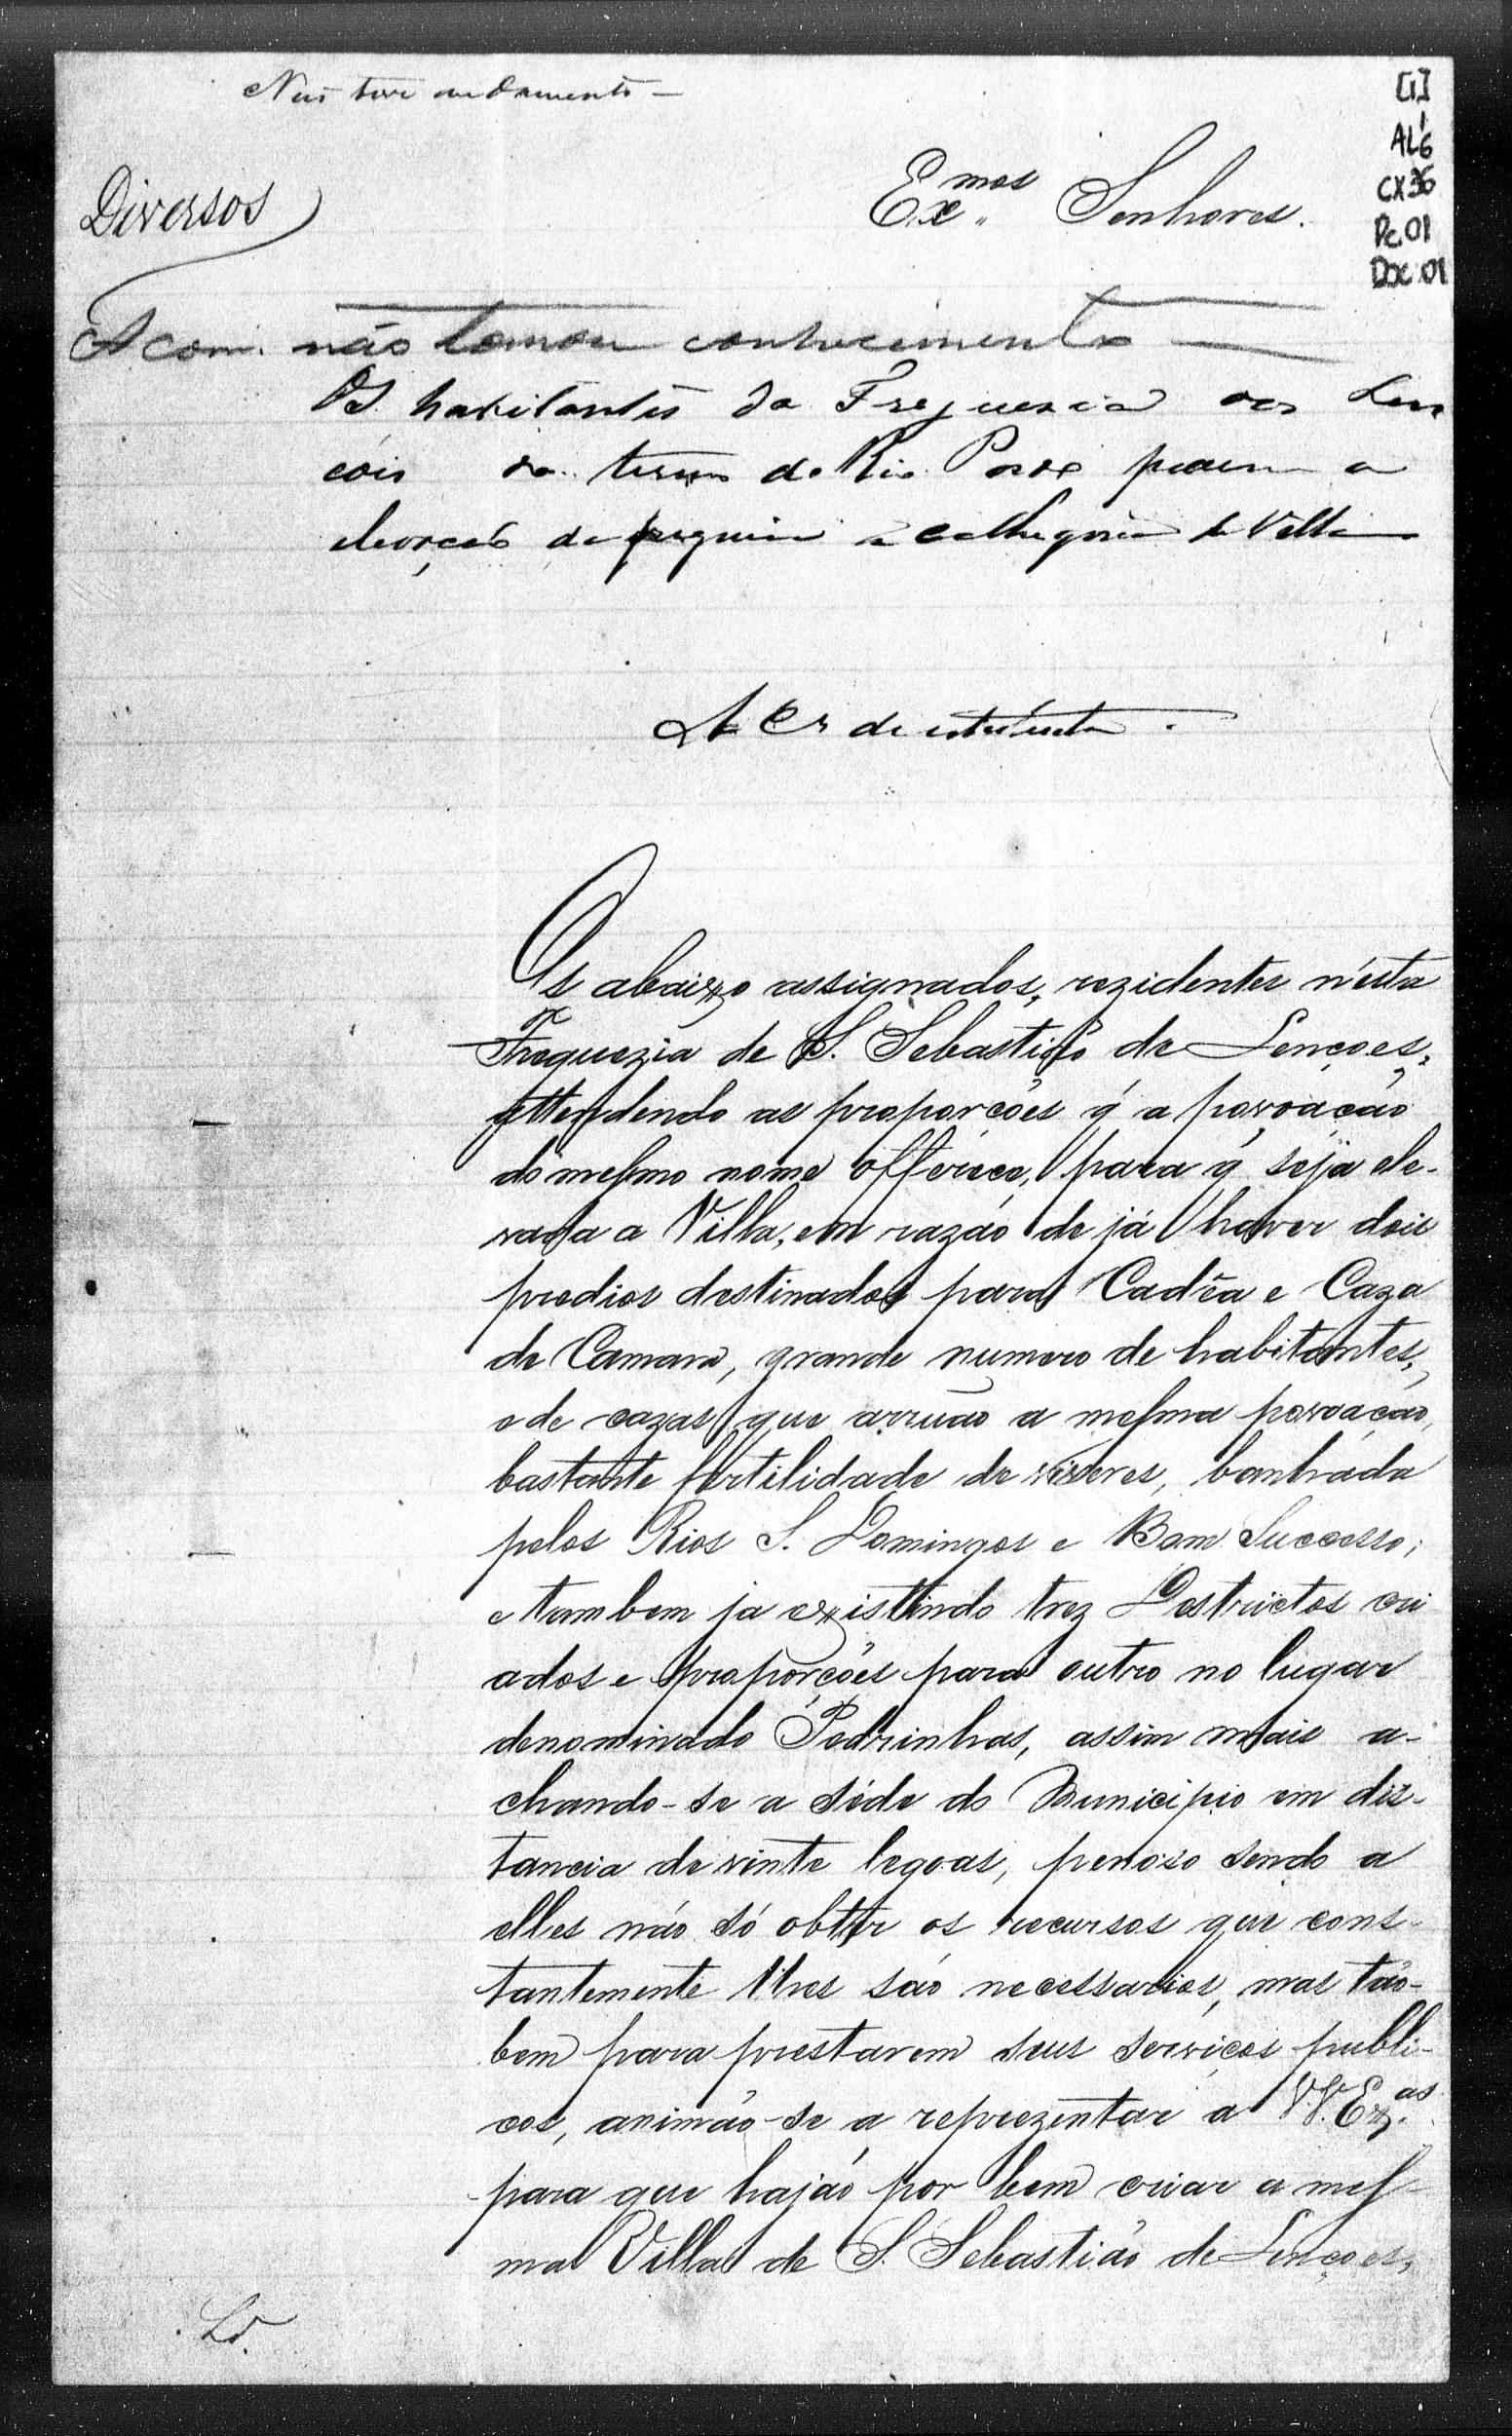 Não teve andamento —
[1]
AL 6
CX 36
Pc. 01
Doc. 01
Diversos
Ex.mos Senhores.
A com. não tomou conhecimento
Os habitantes da Freguezia dos Len
cóis do termo do Rio Pardo pedem a
elevação da freguezia a cathegoria de Villa
A Com de estatistica.
Os abaixo assignados, rezidentes n'esta
Freguezia de S. Sebastião de Lençoes,
attendendo as proporções q' a povoação
do mesmo nome offerece, para q' seja ele-
vada a Villa, em razão de já haver dois
predios destinados para Cadêa e Caza
de Camara, grande numero de habitantes,
e de cazas que arruão a mesma povoação,
bastante fertilidade de viveres, banhada
pelos Rios S. Domingos e Bom Successo;
e tambem ja existindo trez Destrictos cri
ados e proporções para outro no lugar
denominado Pedrinhas, assim mais a-
chando-se a séde do Municipio em dis-
tancia de vinte legoas, penozo sendo a
elles não só obter os recursos que cons-
tantemente lhes são necessarios, mas tão-
bem para prestarem seus serviços publi-
cos, animão-se a reprezentar a V.V. Ex.as
para que hajão por bem criar a mes-
ma Villa de S. Sebastião de Lençoes,